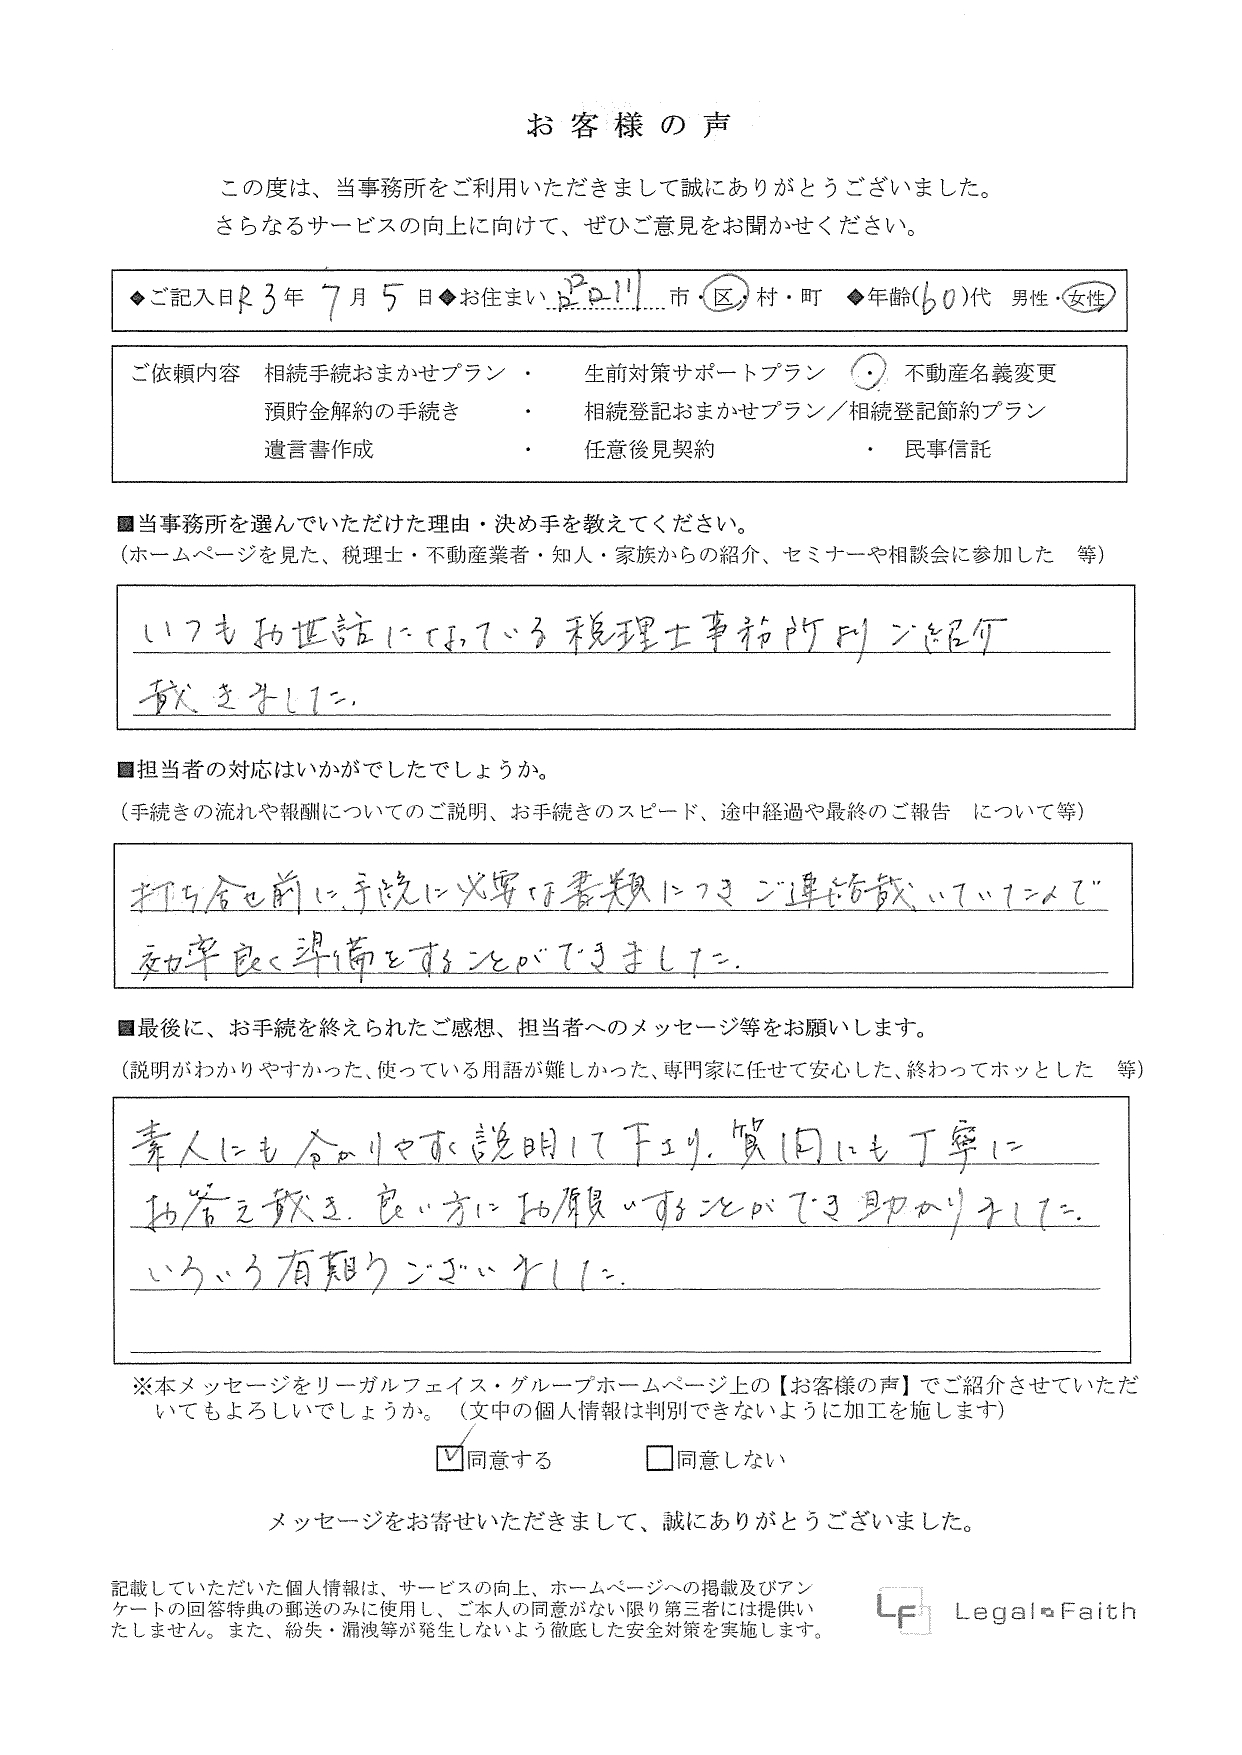 お客様の声
この度は、当事務所をご利用いただきまして誠にありがとうございました。
さらなるサービスの向上に向けて、ぜひご意見をお聞かせください。
◆ご記入日R3年 7月 5日◆お住まい 品川 市・区・村・町 ◆年齢(60)代 男性・女性
ご依頼内容 相続手続おまかせプラン ・ 生前対策サポートプラン ・ 不動産名義変更
預貯金解約の手続き ・ 相続登記おまかせプラン/相続登記節約プラン
遺言書作成 ・ 任意後見契約 ・ 民事信託
■当事務所を選んでいただけた理由・決め手を教えてください。
(ホームページを見た、税理士・不動産業者・知人・家族からの紹介、セミナーや相談会に参加した 等)
いつもお世話になっている税理士事務所よりご紹介
戴きました.
■担当者の対応はいかがでしたでしょうか。
(手続きの流れや報酬についてのご説明、お手続きのスピード、途中経過や最終のご報告 について等)
打ち合せ前に、手続に必要な書類につきご連絡戴いていたので
効率良く準備をすることができました.
■最後に、お手続を終えられたご感想、担当者へのメッセージ等をお願いします。
(説明がわかりやすかった、使っている用語が難しかった、専門家に任せて安心した、終わってホッとした 等)
素人にも分かりやすく説明して下さり、質問にも丁寧に
お答え戴き、良い方にお願いすることができ助かりました.
いろいろ有難うございました.
※本メッセージをリーガルフェイス・グループホームページ上の【お客様の声】でご紹介させていただ
いてもよろしいでしょうか。(文中の個人情報は判別できないように加工を施します)
☑同意する □同意しない
メッセージをお寄せいただきまして、誠にありがとうございました。
記載していただいた個人情報は、サービスの向上、ホームページへの掲載及びアン
ケートの回答特典の郵送のみに使用し、ご本人の同意がない限り第三者には提供い
たしません。また、紛失・漏洩等が発生しないよう徹底した安全対策を実施します。
LF Legal Faith